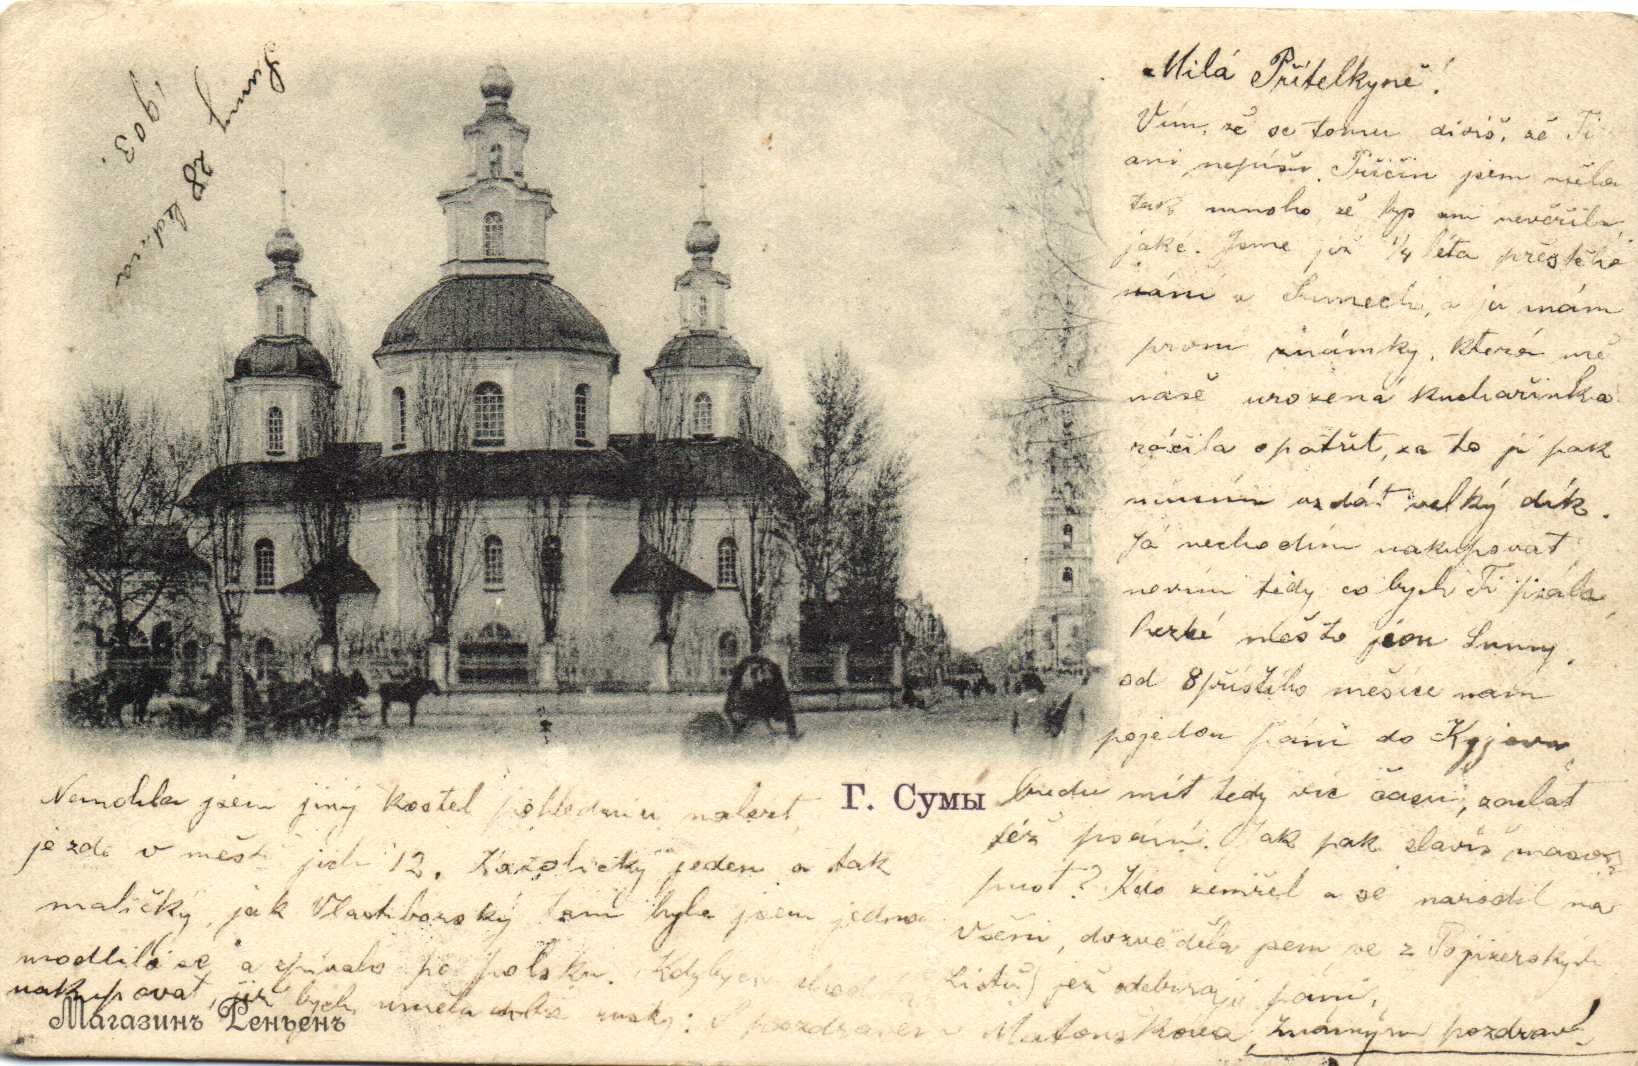 Sumy 28 ledna
1903.
Milá Přítelkyně!
Vím, že se tomu divíš, že Ti
ani nepíšu. Příčin jsem měla
tak mnoho, že bys ani nevěřila,
jaké. Jsme již 1/4 léta přestěho
váni v Sumech, a já mám
první známky, které mě
naše urozená kuchařinka
ráčila opatřit, za to jí pak
musím vzdát velký dík.
Já nechodím nakupovat
nevím tedy co bych Ti psala
hezké město jsou Sumy.
od 8 příštího měsíce nám
pojedou páni do Kyjeva,
budu mít tedy víc času, zaslat
též psaní. Jak pak slavíš masop
pust? Kdo zemřel a se narodil na
Všeni, dozvěděla jsem se z Pojizerských
Listů, jež odebírají páni.
Г. Сумы
Nemohla jsem jiný kostel pohlednici nalezt,
je zde v městě jich 12. Katolický jeden a tak
maličký, jak Vlastiborský tam byla jsem jednou
modlili se a zpívalo po polsku. Kdybych chodila
nakupovat, již bych uměla dobře rusky. S pozdravem Matouškova, známým pozdrav!
Магазинъ Реньенъ